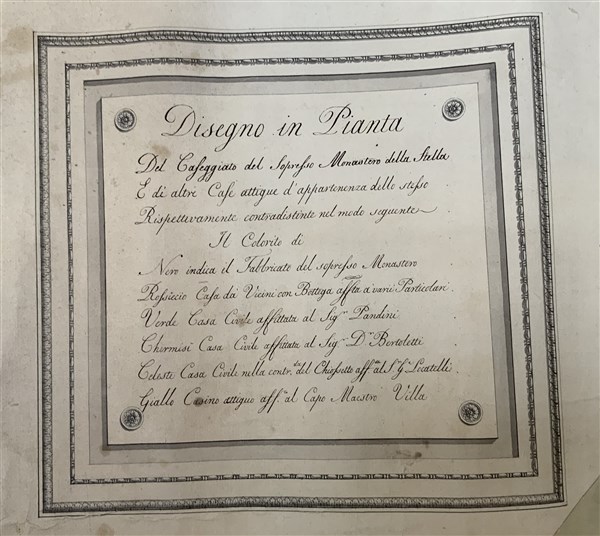 Disegno in Pianta
Del Caseggiato del Soppresso Monastero della Stella
E di altre Case attigue d'appartenenza dello stesso
Rispettivamente contradistinte nel modo seguente
Il Colorito di
Nero indica il Fabbricato del soppresso Monastero
Rossiccio Casa da Vicini con Bottega affitta a varii Particolari
Verde Casa Civile affittata al Sig.r Pandini
Chermisi Casa Civile affittata al Sig.r D.n Bertoletti
Celeste Casa Civile nella contr.da del Chiossetto aff.ta al S.r G. Locatelli
Giallo Casino attiguo aff.o al Capo Maestro Villa